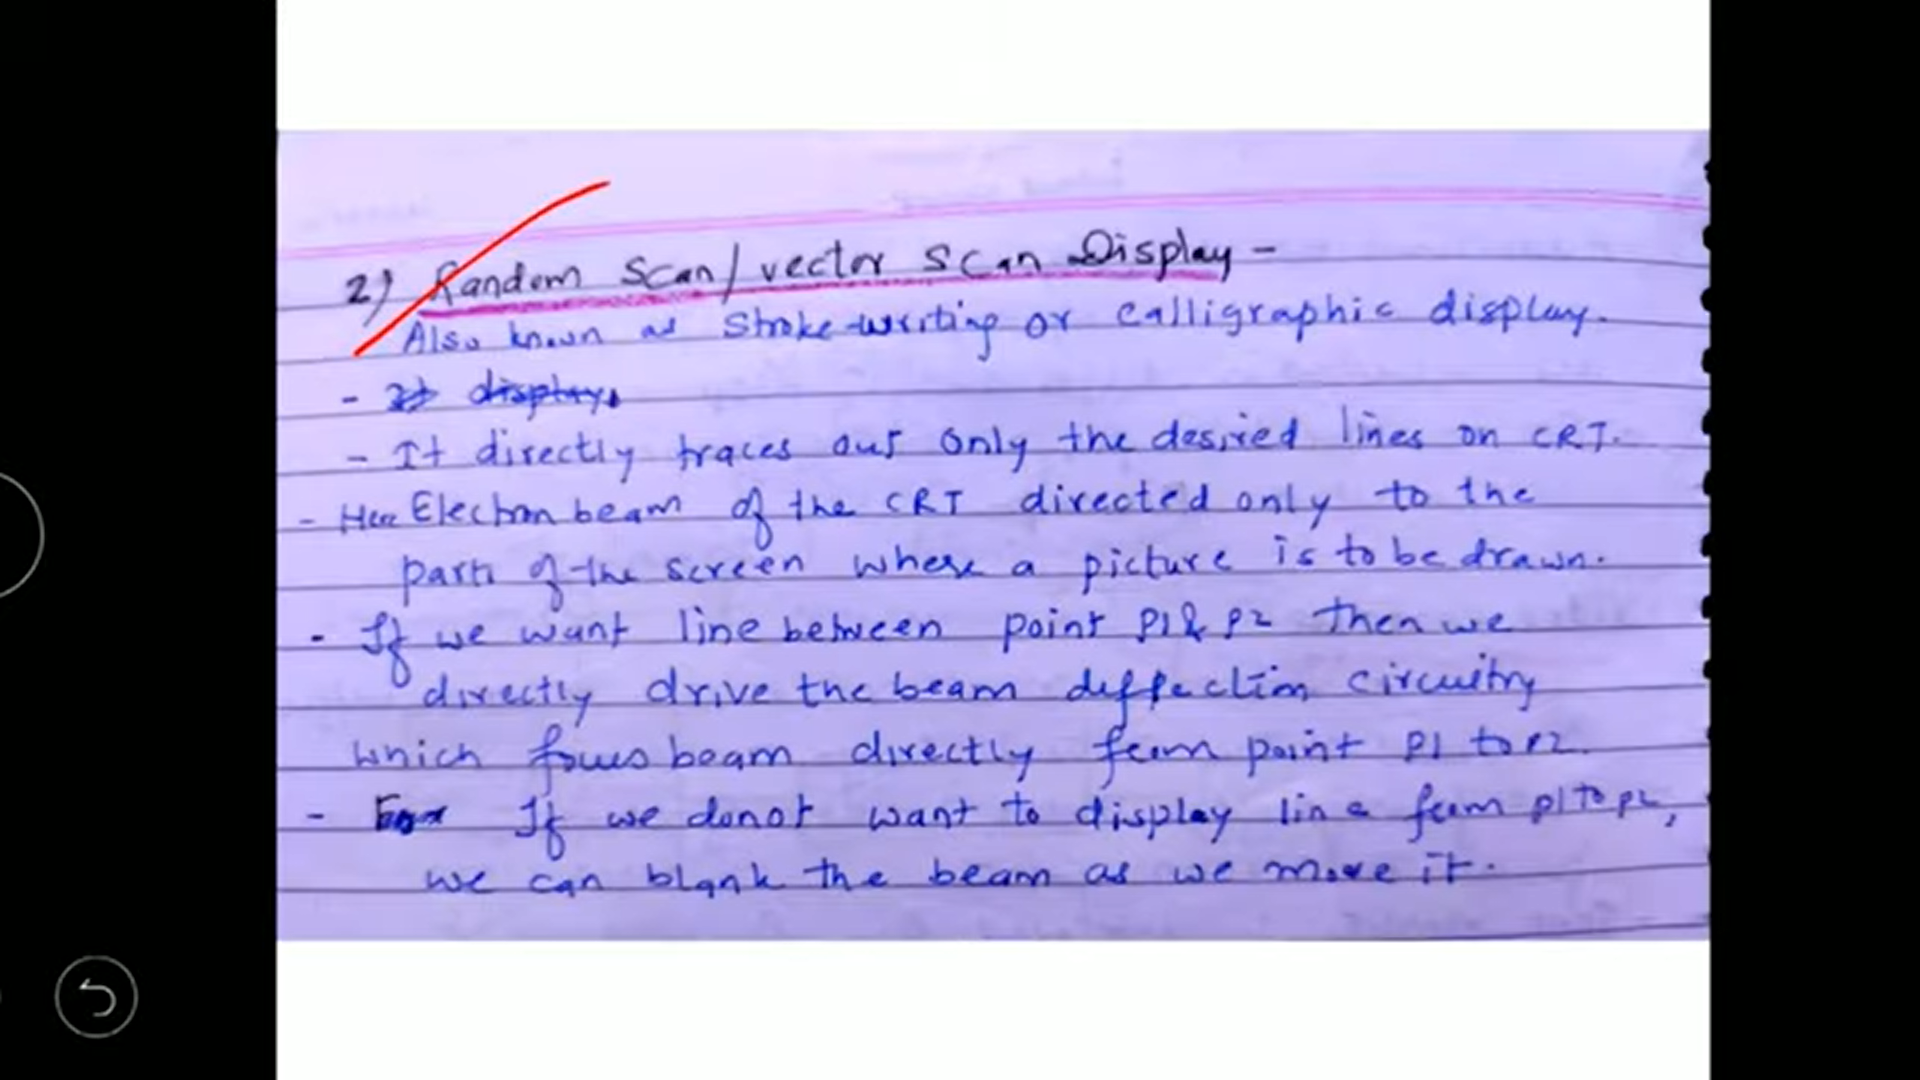 2) Random Scan/vector Scan Display -
Also known as Stroke-writing or calligraphic display.
- It display
- It directly traces out only the desired lines on CRT.
- Here Electron beam of the CRT directed only to the
parts of the screen where a picture is to be drawn.
- If we want line between point P1 & P2 then we
directly drive the beam deffection circuitry
which focus beam directly from point P1 to P2.
- If we donot want to display line from p1 to p2,
we can blank the beam as we move it.